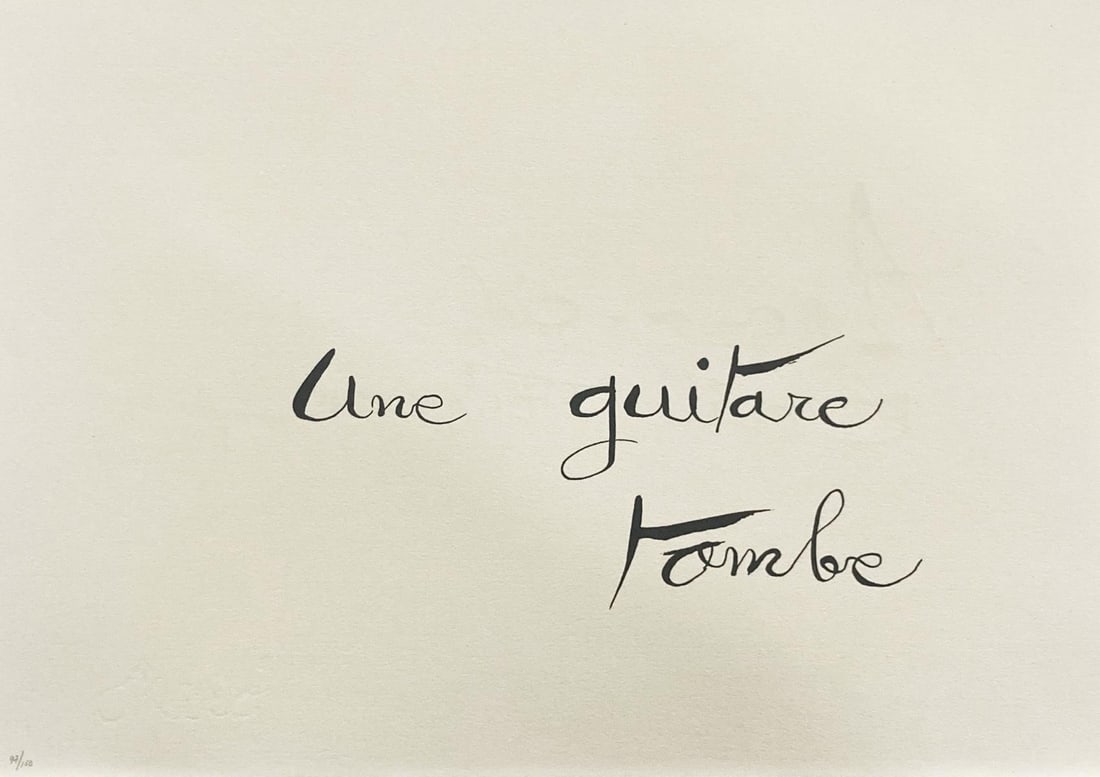 Une guitare
tombe